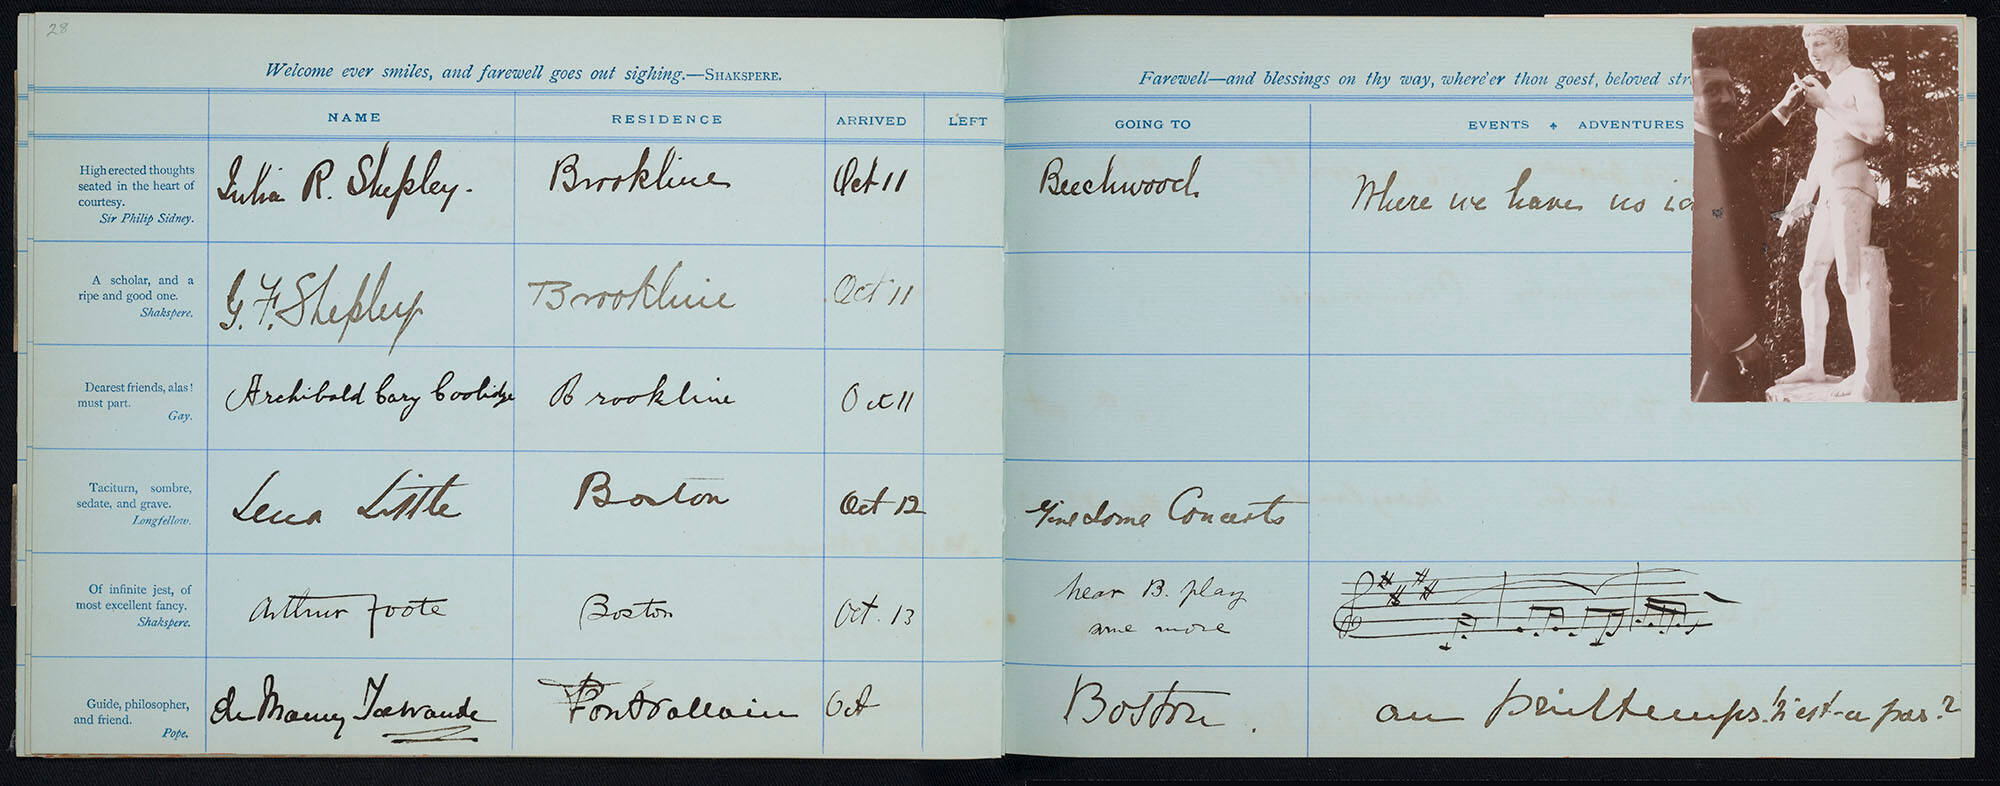 28
Welcome ever smiles, and farewell goes out sighing.—SHAKSPERE.
Farewell—and blessings on thy way, where'er thou goest, beloved str
NAME RESIDENCE ARRIVED LEFT GOING TO EVENTS ADVENTURES
High erected thoughts
seated in the heart of
courtesy.
Sir Philip Sidney.
Julia R. Shepley. Brookline Oct 11 Beechwood Where we have no
A scholar, and a
ripe and good one.
Shakspere.
G. F. Shepley Brookline Oct 11
Dearest friends, alas!
must part.
Gay.
Archibald Cary Coolidge Brookline Oct 11
Taciturn, sombre,
sedate, and grave.
Longfellow.
Lena Little Boston Oct 12 Give some Concerts
Of infinite jest, of
most excellent fancy.
Shakspere.
Arthur Foote Boston Oct. 13 hear B. play
some more
Guide, philosopher,
and friend.
Pope.
de Oct Boston. au printemps. n'est-ce pas?